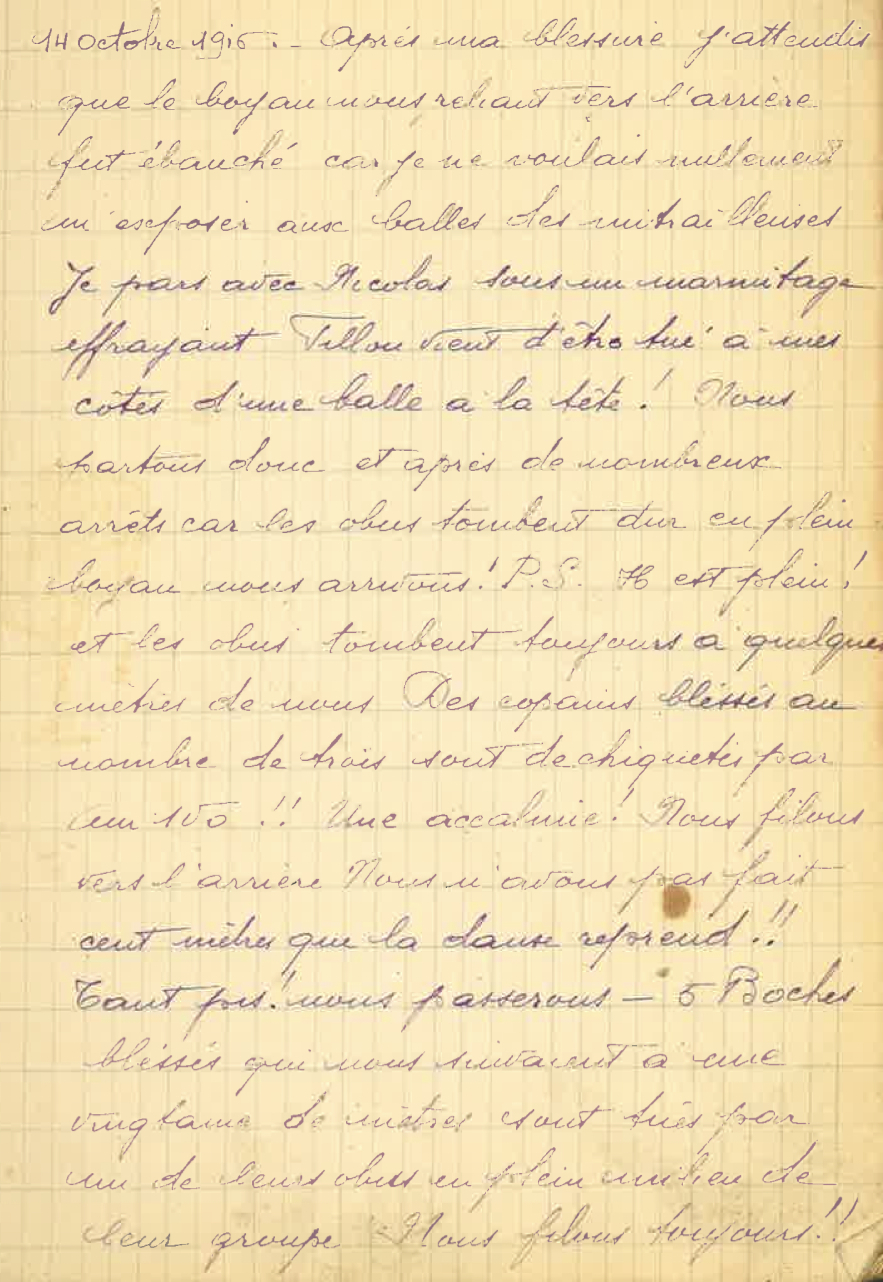 14 Octobre 1916. - Après ma blessure j'attendis
que le boyau nous reliant vers l'arrière
fut ébauché car je ne voulais nullement
m'exposer aux balles des mitrailleuses
Je pars avec Nicolas sous un marmitage
effrayant Tillou vient d'être tué à mes
côtés d'une balle a la tête ! Nous
partons donc et après de nombreux
arrêts car les obus tombent dur en plein
boyau nous arrivons ! P.S. H est plein !
et les obus tombent toujours a quelques
mètres de nous Des copains bléssés au
nombre de trois sont dechiquetés par
un 150 !! Une accalmie ! Nous filons
vers l'arrière Nous n'avons pas fait
cent mètres que la danse reprend !!
Tant pis ! nous passerons — 5 Boches
bléssés qui nous suivaient a une
vingtaine de mètres sont tués par
un de leurs obus en plein milieu de
leur groupe Nous filons toujours !!